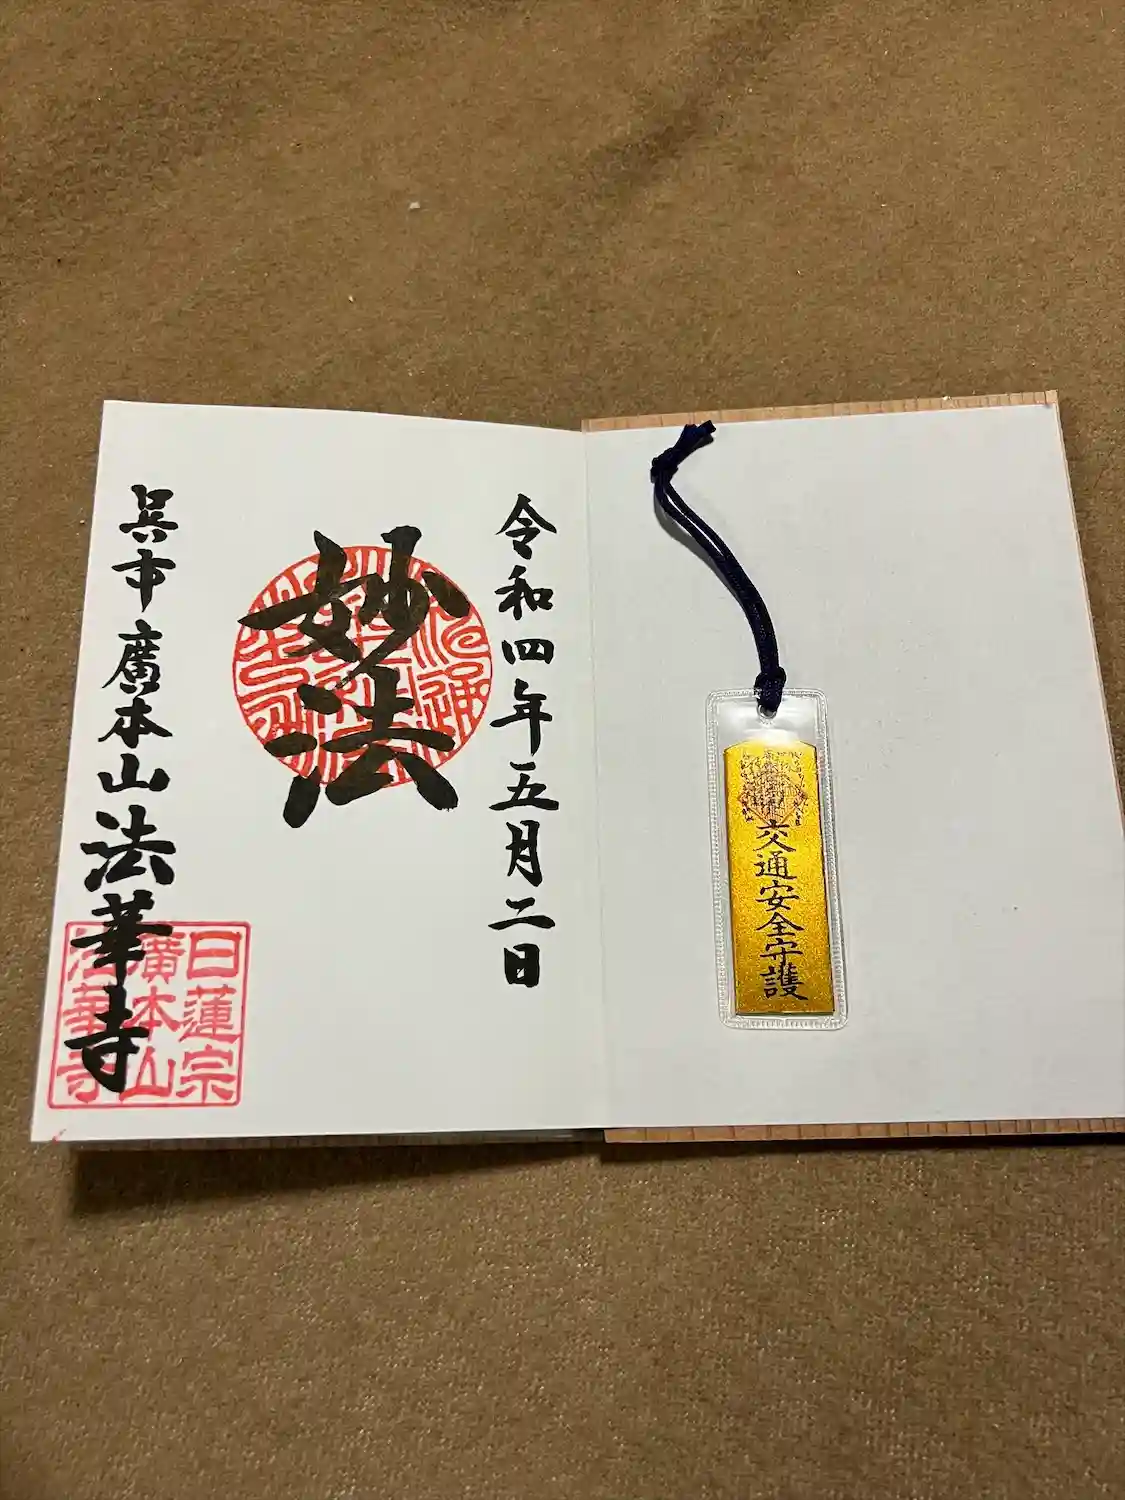 交通安全守護
令和四年五月二日
妙法
呉市廣本山法華寺
日蓮宗
廣本山
法華寺